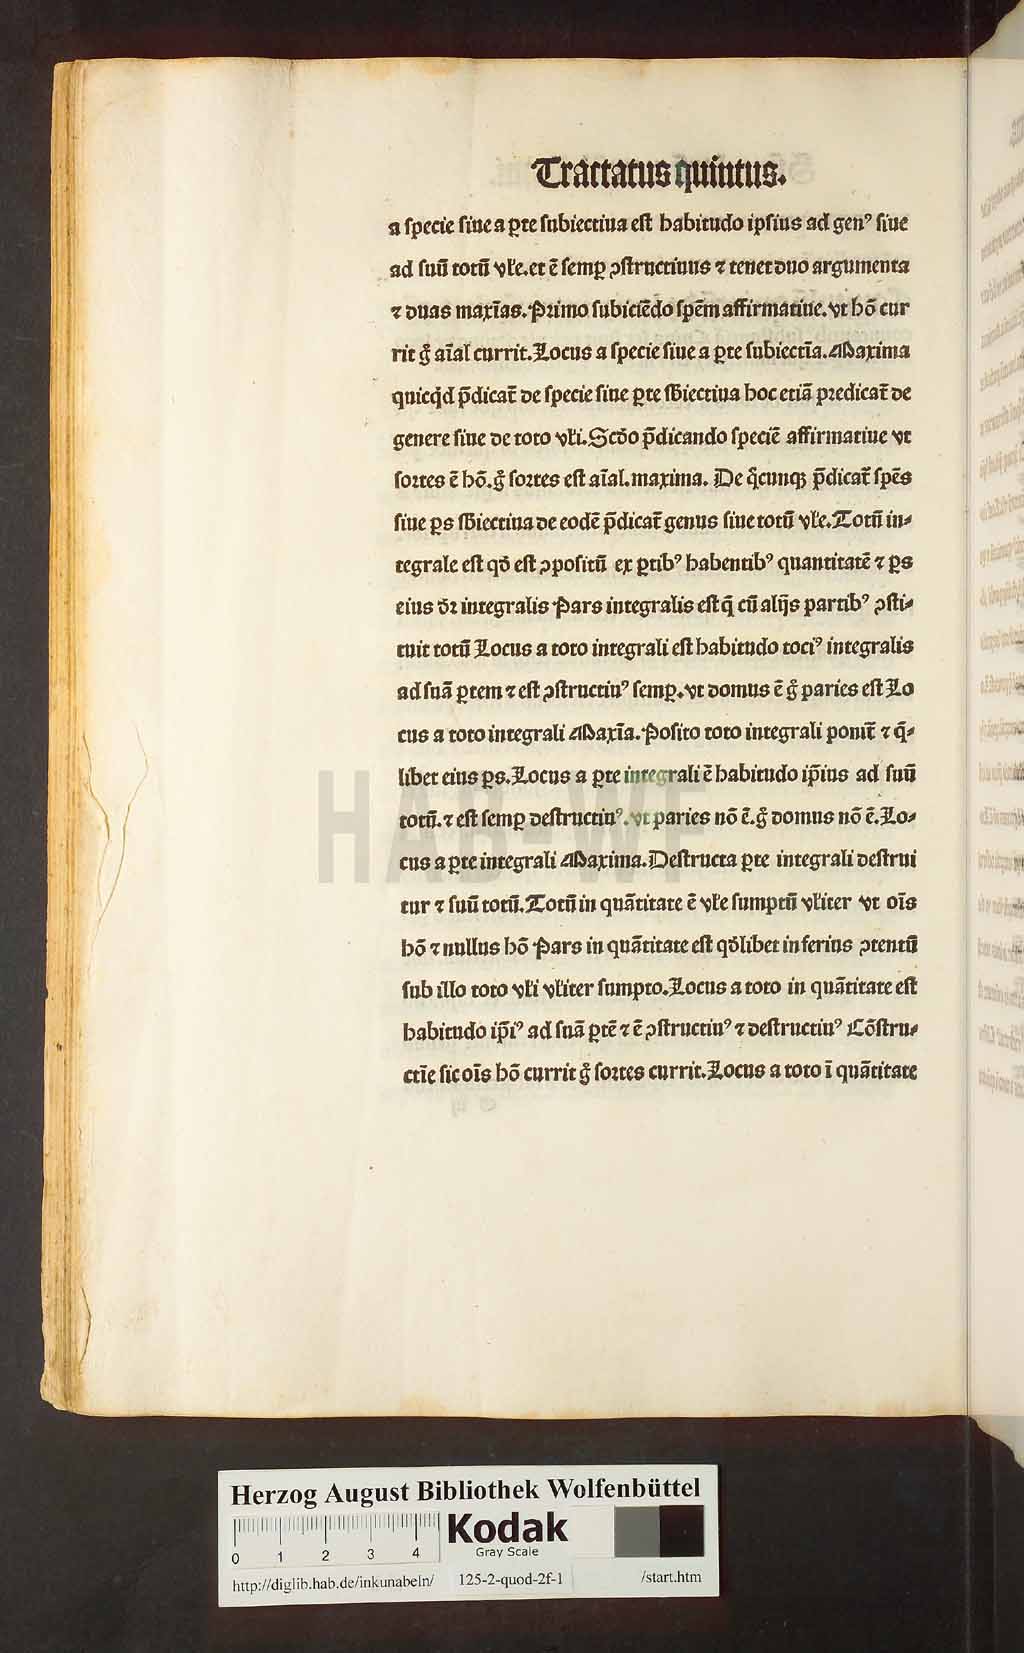 Tractatus quintus.
a specie siue a ꝑte subiectiua est habitudo ipsius ad genꝰ siue
ad suū totū vłe. et ē semꝑ ꝯstructiuus ⁊ tenet duo argumenta
⁊ duas maxīas. Primo subiciēdo spēm affirmatiue. vt hō cur
rit gͦ aīal currit. Locus a specie siue a ꝑte subiectīa. Maxima
quicqͥd p̄dicat̄ de specie siue ꝑte sBiectiua hoc etiā predicat̄ de
genere siue de toto vłi. Scďo p̄dicando speciē affirmatiue vt
sortes ē hō. gͦ sortes est aīal. maxima. De qͦcunqꝫ p̄dicat̄ spēs
siue ꝑs sBiectiua de eodē p̄dicat̄ genus siue totū vłe. Totū in-
tegrale est qď est ꝯpositū ex ꝑtibꝰ habentibꝰ quantitatē ⁊ ꝑs
eius ďr integralis Pars integralis est q̄ cū alijs partibꝰ ꝯsti-
tuit totū Locus a toto integrali est habitudo tociꝰ integralis
ad suā ꝑtem ⁊ est ꝯstructiuꝰ semꝑ. vt domus ē gͦ paries est Lo
cus a toto integrali Maxīa. Posito toto integrali ponit̄ ⁊ q̄-
libet eius ꝑs. Locus a ꝑte integrali ē habitudo ip̄ius ad suū
totū. ⁊ est semꝑ destructiuꝰ. vt paries nō ē. gͦ domus nō ē. Lo-
cus a ꝑte integrali Maxima. Destructa ꝑte integrali destrui
tur ⁊ suū totū. Totū in quātitate ē vłe sumptū vłiter vt oīs
hō ⁊ nullus hō Pars in quātitate est qďlibet inferius ꝯtentū
sub illo toto vłi vłiter sumpto. Locus a toto in quātitate est
habitudo ip̄iꝰ ad suā ꝑtē ⁊ ē ꝯstructiuꝰ ⁊ destructiuꝰ Cōstru-
ctīe sic oīs hō currit gͦ sortes currit. Locus a toto ī quātitate
HAB-WF
Herzog August Bibliothek Wolfenbüttel
0 1 2 3 4
Kodak
Gray Scale
http://diglib.hab.de/inkunabeln/ 125-2-quod-2f-1 /start.htm